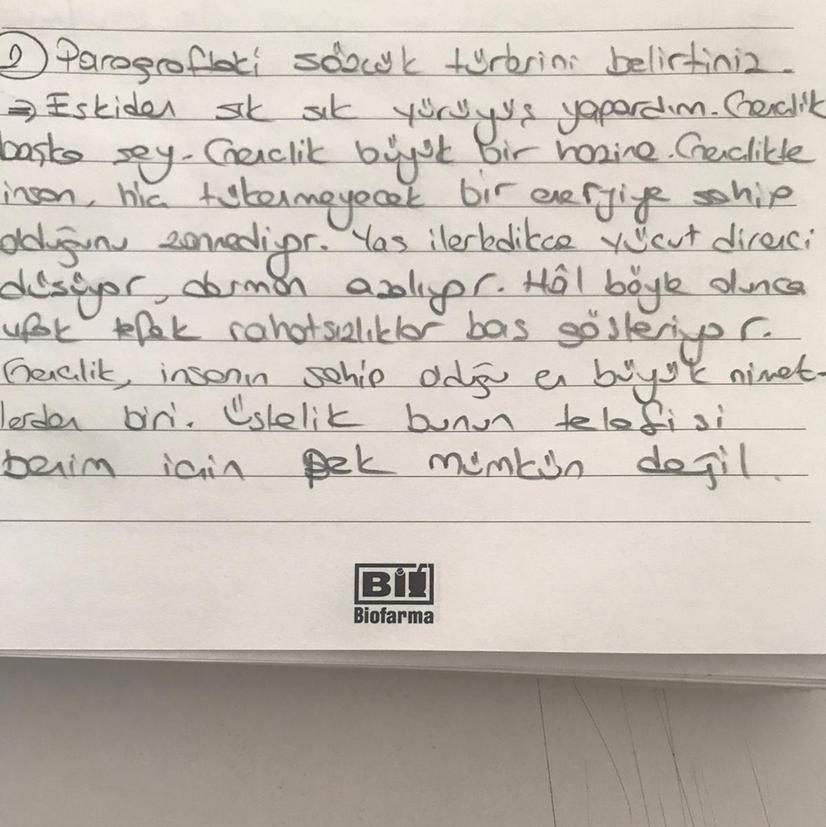 2) Paragraftaki sözcük türlerini belirtiniz.
⇒ Eskiden sık sık yürüyüş yapardım. Gençlik
başka şey. Gençlik büyük bir hazine. Gençlikte
insan, hiç tükenmeyecek bir enerjiye sahip
olduğunu zannediyor. Yaş ilerledikçe vücut direnci
düşüyor, derman azalıyor. Hâl böyle olunca
ufak tefek rahatsızlıklar baş gösteriyor.
Gençlik, insanın sahip olduğu en büyük nimet-
lerden biri. Üstelik bunun telafisi
benim için pek mümkün değil.
Bi
Biofarma